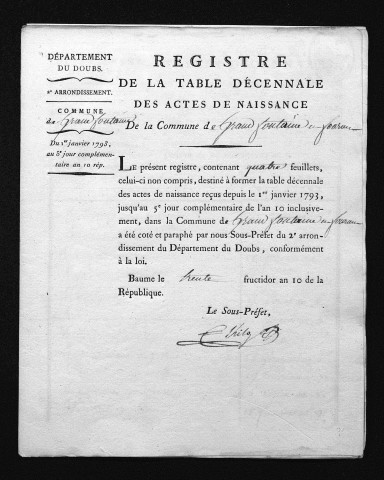 DÉPARTEMENT
DU DOUBS.
2e ARRONDISSEMENT.
COMMUNE
de Grand fontaine
Du 1er janvier 1793,
au 5e jour complémen-
taire an 10 rép.
REGISTRE
DE LA TABLE DÉCENNALE
DES ACTES DE NAISSANCE
De la Commune de Grand fontaine
LE présent registre, contenant quatre feuillets,
celui-ci non compris, destiné à former la table décennale
des actes de naissance reçus depuis le 1er janvier 1793,
jusqu'au 5e jour complémentaire de l'an 10 inclusive-
ment, dans la Commune de Grand fontaine
a été coté et paraphé par nous Sous-Préfet du 2e arron-
dissement du Département du Doubs, conformément
à la loi.
Baume le trente fructidor an 10 de la
République.
Le Sous-Préfet,